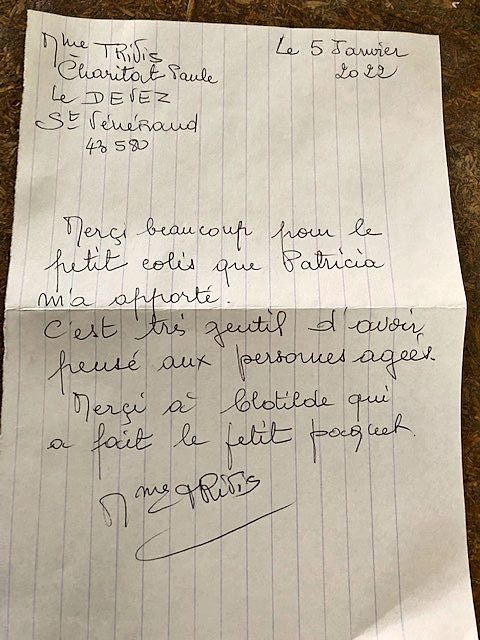 Mme TRIVIS
Le 5 Janvier
2022
Charitat Paule
Le DEVEZ
St Vénérand
43580
Merçi beaucoup pour le
petit colis que Patricia
m'a apporté.
C'est trés gentil d'avoir
pensé aux personnes ageés.
Merçi à Clotilde qui
a fait le petit pacquet.
Mme TRIVIS